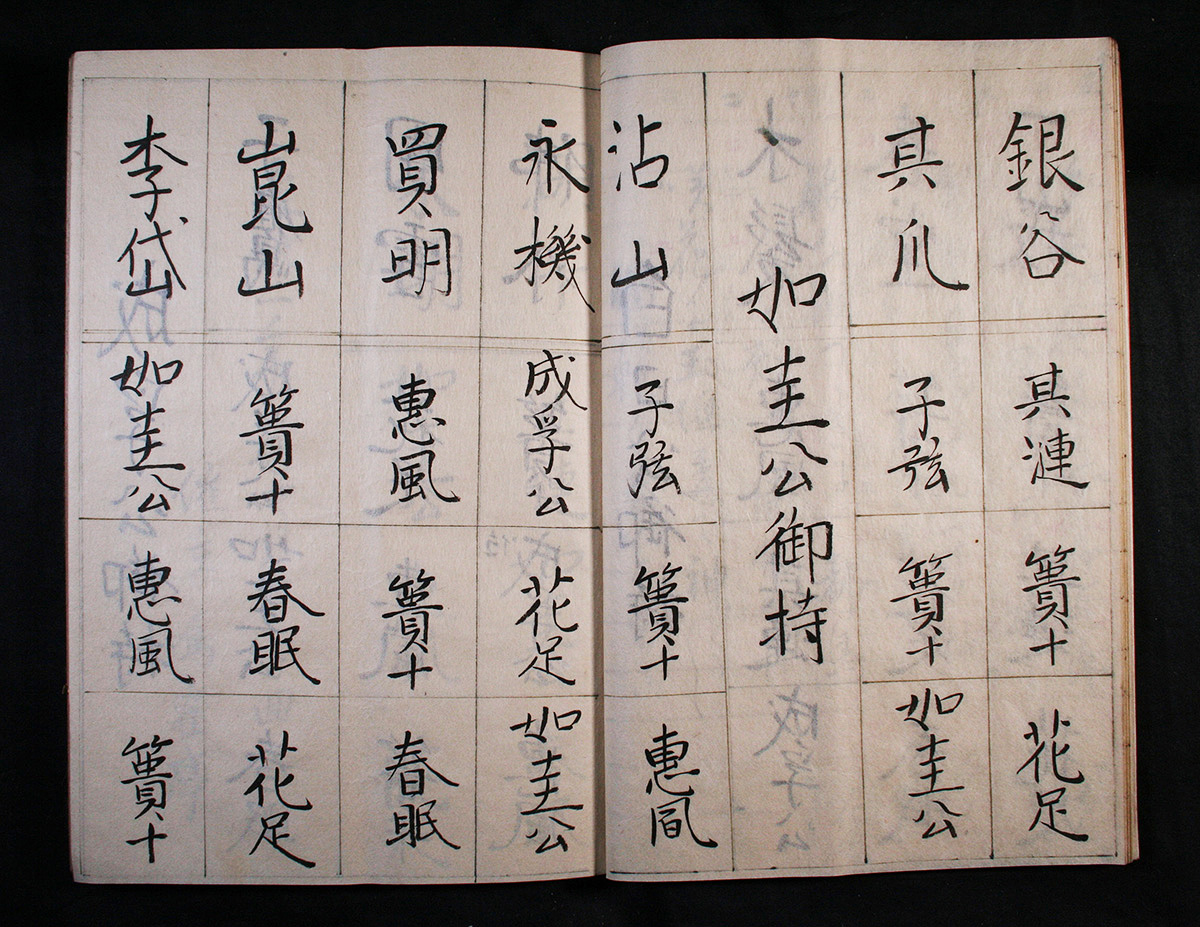 銀谷 其漣 簣十 花足
其爪 子弦 簣十 如圭公
如圭公御持
沾山 子弦 簣十 惠風
永機 成孚公 花足 如圭公
買明 惠風 簣十 春眠
崑山 簣十 春眠 花足
李岱 如圭公 惠風 簣十